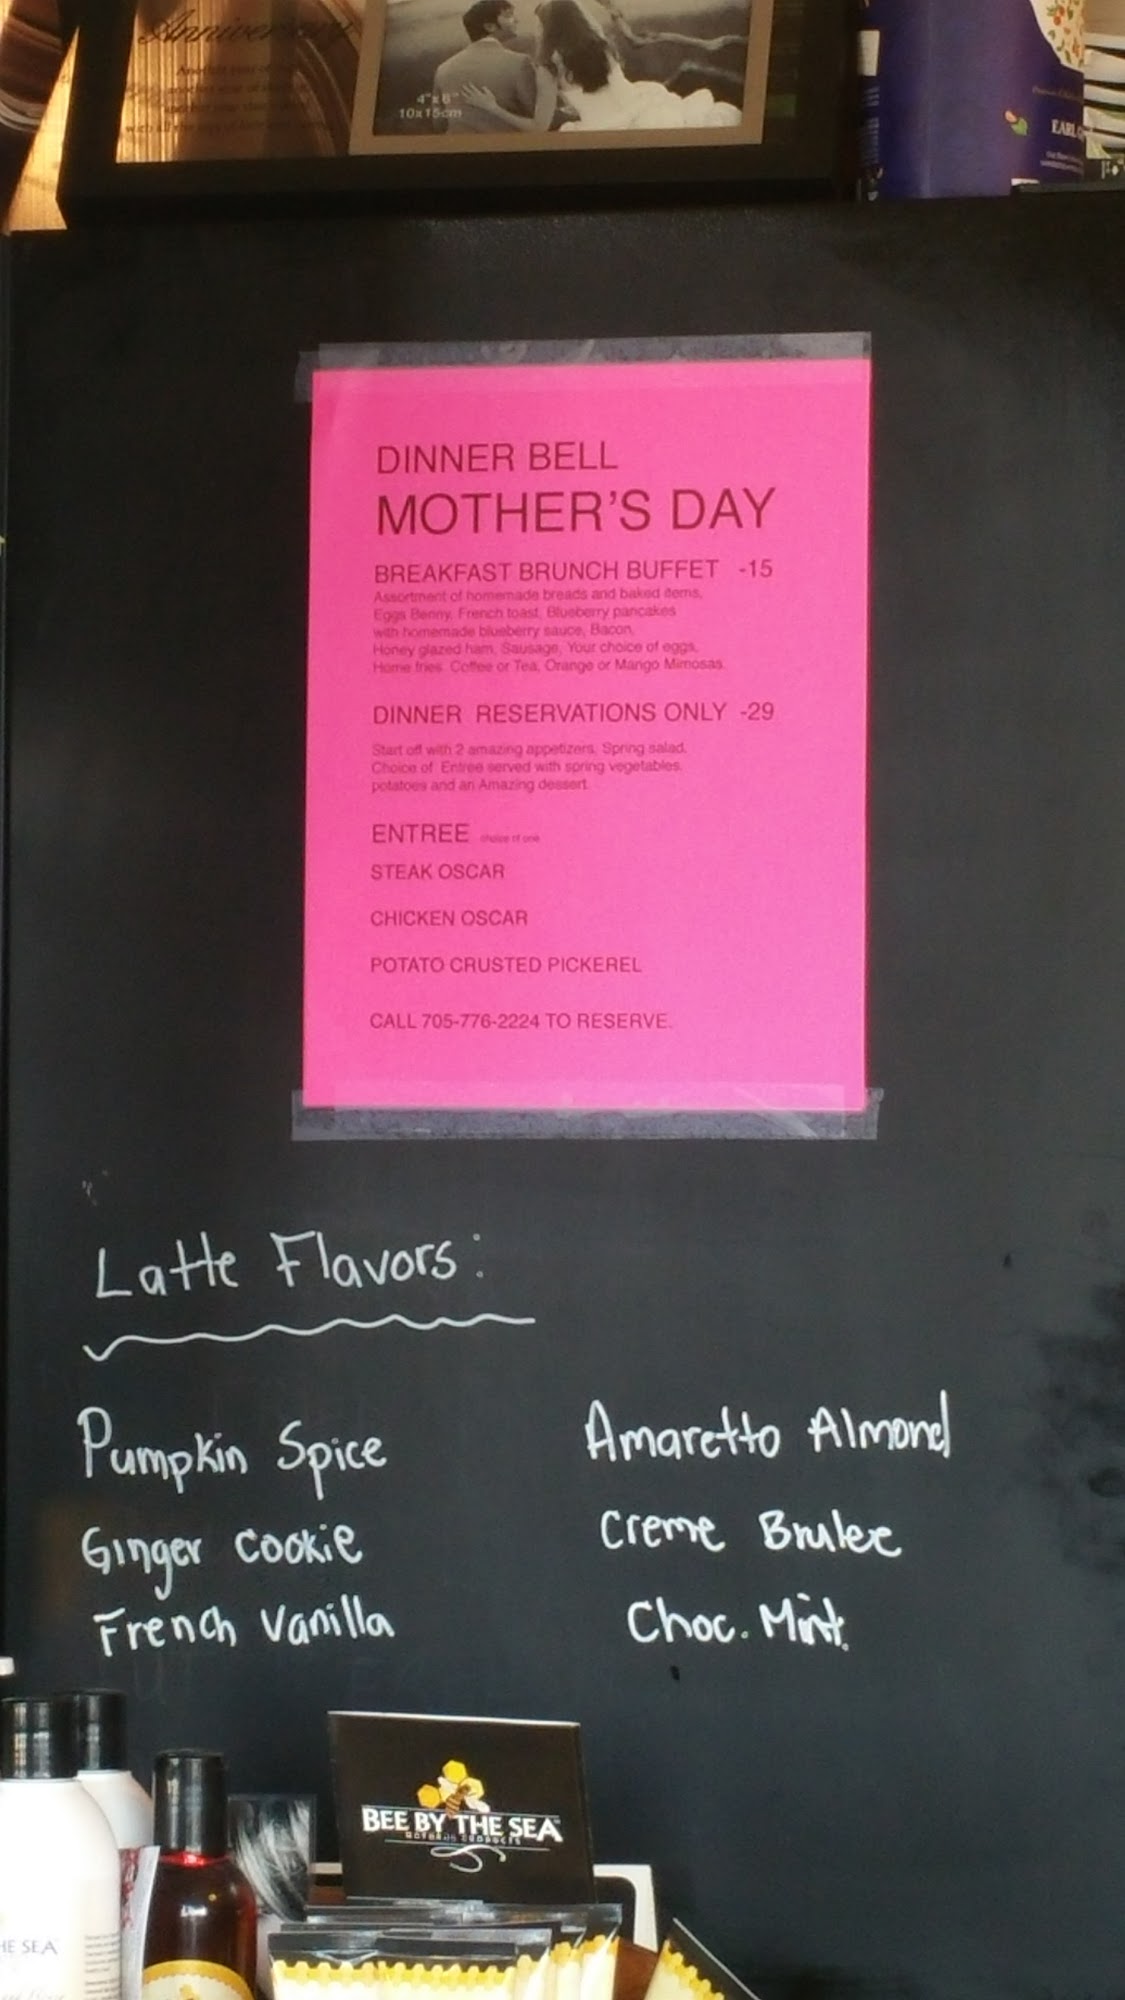 Anniversary
4"x6"
10x15cm
EARL
DINNER BELL
MOTHER'S DAY
BREAKFAST BRUNCH BUFFET -15
Assortment of homemade breads and baked items,
Eggs Benny, French toast, Blueberry pancakes
with homemade blueberry sauce, Bacon,
Honey glazed ham, Sausage, Your choice of eggs,
Home fries, Coffee or Tea, Orange or Mango Mimosas.
DINNER RESERVATIONS ONLY -29
Start off with 2 amazing appetizers, Spring salad,
Choice of Entree served with spring vegetables,
potatoes and an Amazing dessert.
ENTREE choice of one
STEAK OSCAR
CHICKEN OSCAR
POTATO CRUSTED PICKEREL
CALL 705-776-2224 TO RESERVE.
Latte Flavors:
Pumpkin Spice
Amaretto Almond
Ginger Cookie
Creme Brulee
French Vanilla
Choc. Mint.
BEE BY THE SEA
NATURAL PRODUCTS
HE SEA